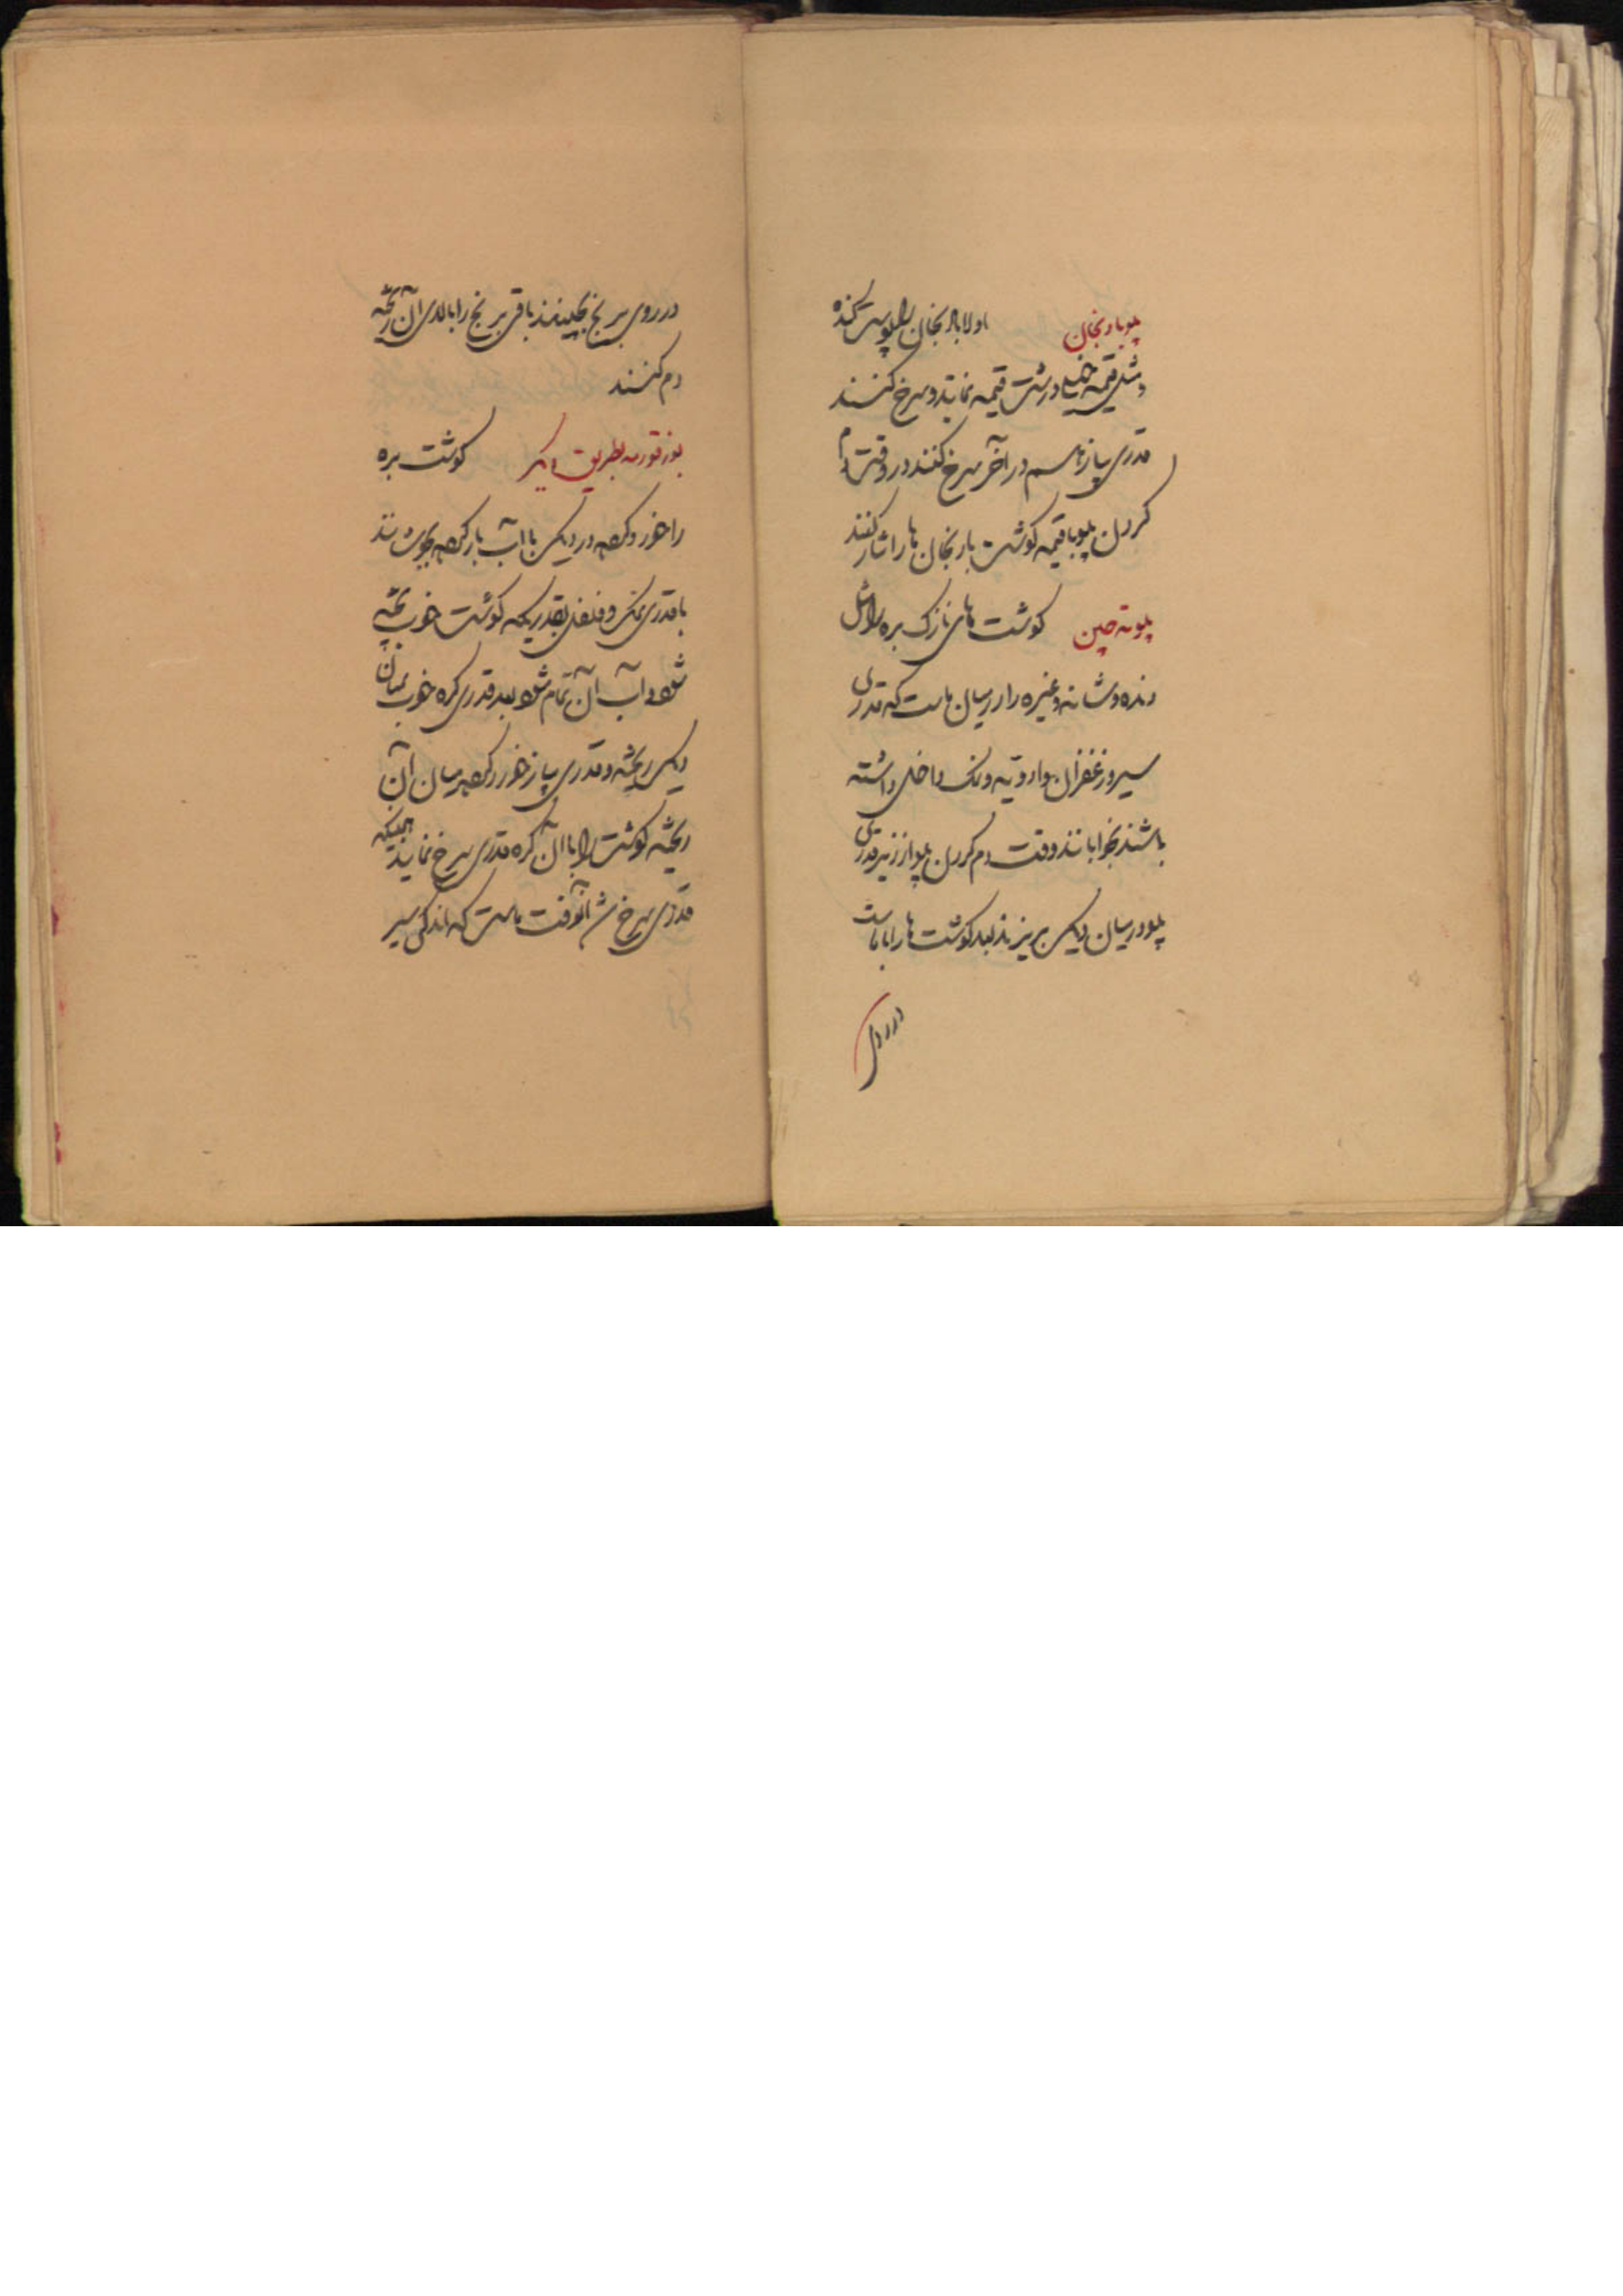 پلو بادنجان اولا بادنجان را پوست کنده
و مثل قیمه خیلی درشت قیمه نمایند و سرخ کنند
قدری پیاز هم در آخر سرخ کنند در وقت دم
کردن پلو با قیمه گوشت بادنجان ها را نثار کنند
پلو ته چین گوشت های نازک بره را مثل
دنده و شانه و غیره را در میان ماست که قدری
سیر و زعفران و ادویه و نمک داخل داشته
باشند بخوابانند وقت دم کردن پلو از زیر قدری
پلو در میان دیک بریزند بعد گوشت ها را با ماست
در روی
در روی برنج بچینند باقی برنج را بالای آن ریخته
دم کنند
بوزقورمه بطریق دیگر گوشت بره
را خورد کرده در دیک با آب بار کرده بجوشانند
با قدری نمک و فلفل بقدریکه گوشت خوب پخته
شود و آب آن تمام شود بعد قدری کره خوب بمیان
دیک ریخته و قدری پیاز خورد کرده میان آن
ریخته گوشت را با آن کره قدری سرخ نمایند همینکه
قدری سرخ شد آنوقت ماست که اندکی سیر